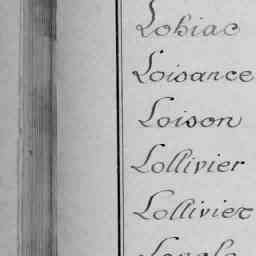 Lohiac
Loisance
Loison
Lollivier
Lollivier